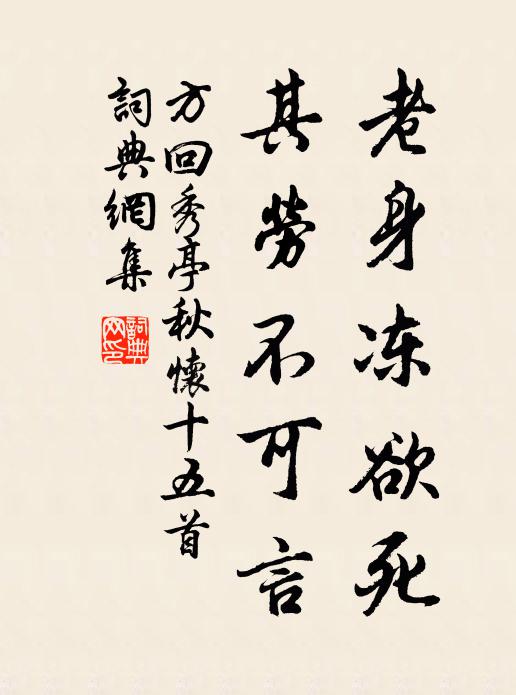 老身冻欲死
其勞不可言
方回秀亭秋懷十五首
詞典網集
詞典网印